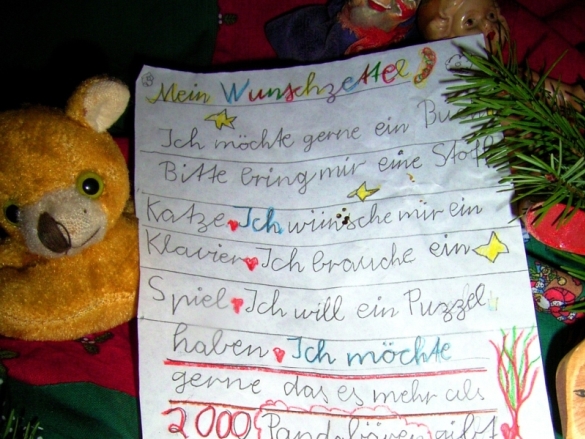 Mein Wunschzettel
Ich möchte gerne ein
Bitte bring mir eine
Katze Ich wünsche mir ein
Klavier Ich brauche ein
Spiel Ich will ein Puzzel
haben Ich möchte
gerne das es mehr als
2000 Pandabären gibt